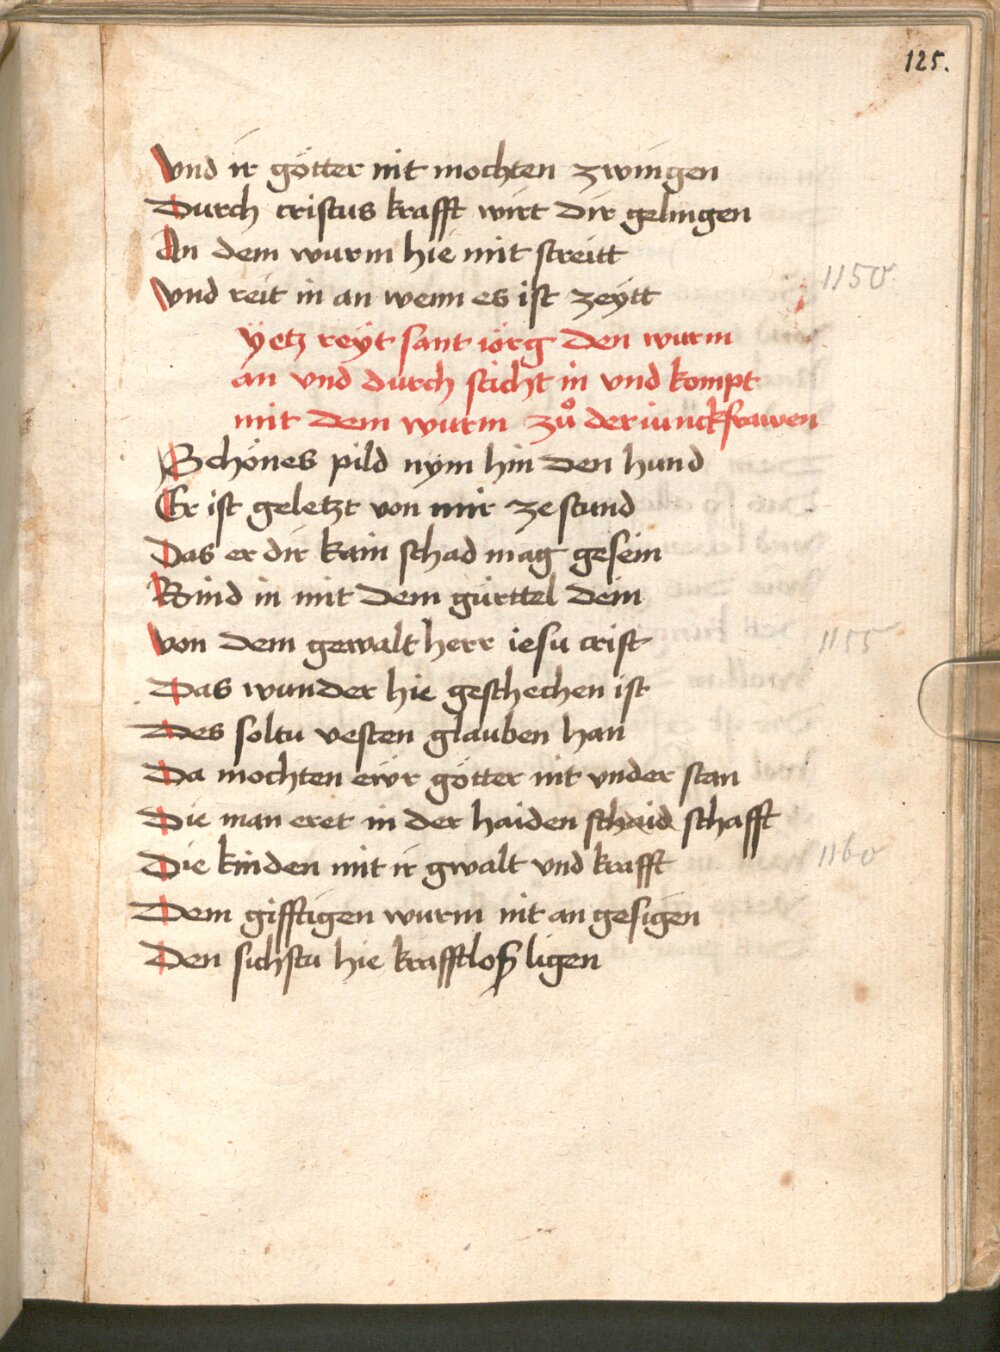 125.
Vnd ir götter nit mochten zwingen
Durch cristus krafft wirt dir gelingen
An dem wurm hie mit streitt
1150
Vnd reit in an wenn es ist zeÿtt
Ÿetz reÿt sant iörg den wurm
an vnd durch sticht in vnd kompt
mit dem wurm zů der iunckfrawen
Schönes pild nÿm hin den hund
Er ist geletzt von mir zestund
Das er dir kain schad mag gesein
Bind in mit dem gürttel dein
1155
Von dem gewalt herr iesu crist
Das wunder hie geschechen ist
Des soltu vesten glauben han
Da mochten ewr götter nit vnder stan
Die man eret in der haiden schaid schafft
1160
Die kinden mit ir gwalt vnd krafft
Dem gifftigen wurm nit an gesigen
Den sichstu hie krafftloß ligen